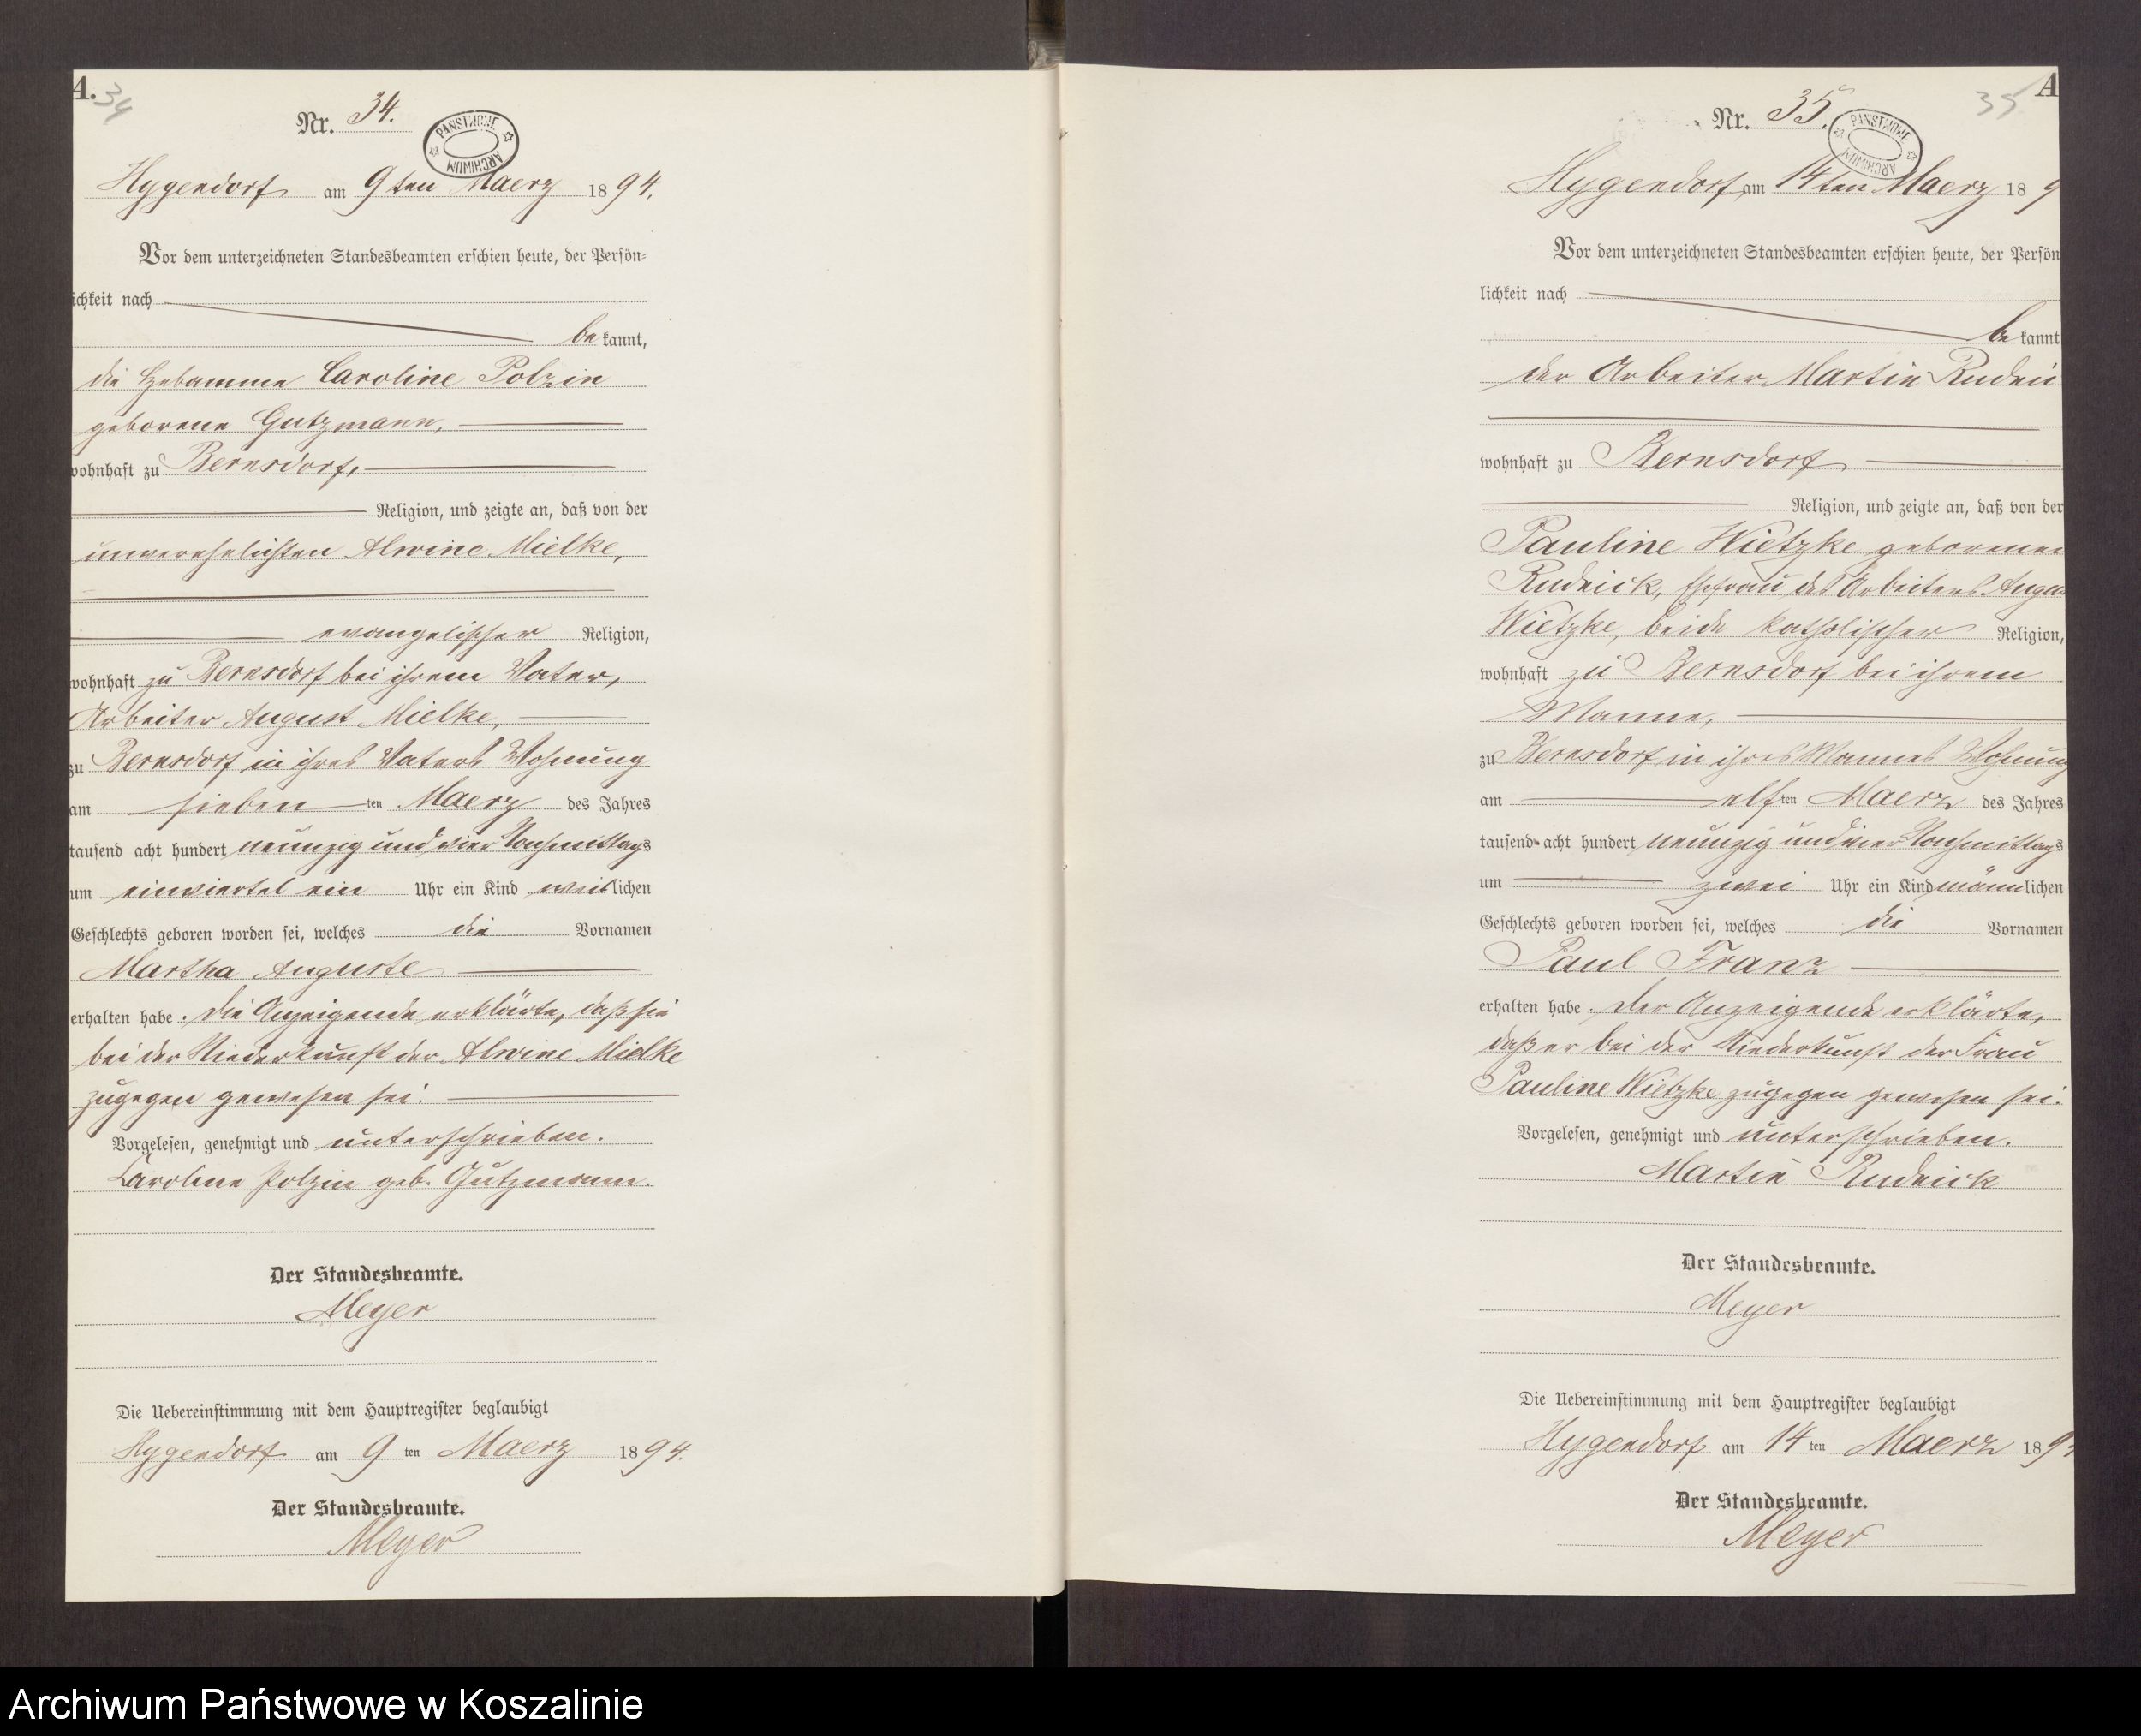 A. 34
Nr. 34.
PAŃSTWOWE ARCHIWUM
Hygendorf am 9ten Maerz 1894.
Vor dem unterzeichneten Standesbeamten erschien heute, der Persön-
ichkeit nach
be kannt,
die Hebamme Caroline Polzin
geborene Gutzmann,
wohnhaft zu Bernsdorf,
Religion, und zeigte an, daß von der
unverehelichten Alwine Mielke,
evangelischer Religion,
wohnhaft zu Bernsdorf bei ihrem Vater,
Arbeiter August Mielke,
zu Bernsdorf in ihres Vaters Wohnung
am sieben ten Maerz des Jahres
tausend acht hundert neunzig und vier Nachmittags
um einviertel ein Uhr ein Kind weiblichen
Geschlechts geboren worden sei, welches die Vornamen
Martha Auguste
erhalten habe. Die Anzeigende erklärte, daß sie
bei der Niederkunft der Alwine Mielke
zugegen gewesen sei.
Vorgelesen, genehmigt und unterschrieben.
Caroline Polzin geb. Gutzmann.
Der Standesbeamte.
Meyer
Die Uebereinstimmung mit dem Hauptregister beglaubigt
Hygendorf am 9 ten Maerz 1894.
Der Standesbeamte.
Meyer
35 A
Nr. 35.
PAŃSTWOWE ARCHIWUM
Hygendorf am 14ten Maerz 189
Vor dem unterzeichneten Standesbeamten erschien heute, der Persön
lichkeit nach
be kannt
der Arbeiter Martin Rudni
wohnhaft zu Bernsdorf
Religion, und zeigte an, daß von der
Pauline Wietzke geborenen
Rudnick, Ehefrau des Arbeiters Augus
Wietzke, beide katholischer Religion,
wohnhaft zu Bernsdorf bei ihrem
Manne,
zu Bernsdorf in ihres Mannes Wohnung
am elf ten Maerz des Jahres
tausend acht hundert neunzig und vier Nachmittags
um zwei Uhr ein Kind männlichen
Geschlechts geboren worden sei, welches die Vornamen
Paul Franz
erhalten habe. Der Anzeigende erklärte,
daß er bei der Niederkunft der Frau
Pauline Wietzke zugegen gewesen sei.
Vorgelesen, genehmigt und unterschrieben.
Martin Rudnick
Der Standesbeamte.
Meyer
Die Uebereinstimmung mit dem Hauptregister beglaubigt
Hygendorf am 14 ten Maerz 189
Der Standesbeamte.
Meyer
Archiwum Państwowe w Koszalinie